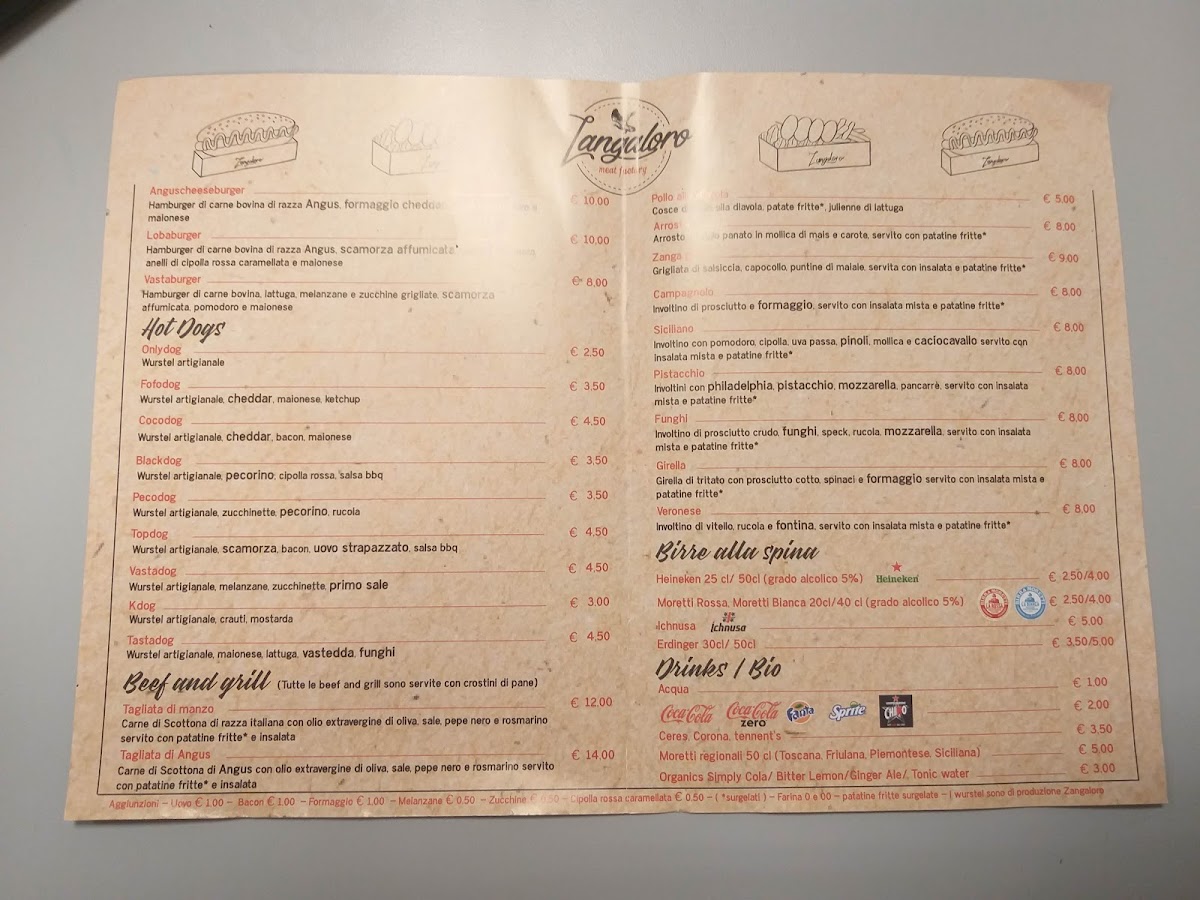 Zangaloro
meat factory
Zangaloro
Zangaloro
Zangaloro
Anguscheeseburger € 10.00
Hamburger di carne bovina di razza Angus, formaggio cheddar
maionese
Lobaburger € 10.00
Hamburger di carne bovina di razza Angus, scamorza affumicata
anelli di cipolla rossa caramellata e maionese
Vastaburger € 8.00
Hamburger di carne bovina, lattuga, melanzane e zucchine grigliate, scamorza
affumicata, pomodoro e maionese
Hot Dogs
Onlydog € 2.50
Wurstel artigianale
Fofodog € 3.50
Wurstel artigianale, cheddar, maionese, ketchup
Cocodog € 4.50
Wurstel artigianale, cheddar, bacon, maionese
Blackdog € 3.50
Wurstel artigianale, pecorino, cipolla rossa, salsa bbq
Pecodog € 3.50
Wurstel artigianale, zucchinette, pecorino, rucola
Topdog € 4.50
Wurstel artigianale, scamorza, bacon, uovo strapazzato, salsa bbq
Vastadog € 4.50
Wurstel artigianale, melanzane, zucchinette, primo sale
Kdog € 3.00
Wurstel artigianale, crauti, mostarda
Tastadog € 4.50
Wurstel artigianale, maionese, lattuga, vastedda, funghi
Beef and grill (Tutte le beef and grill sono servite con crostini di pane)
Tagliata di manzo € 12.00
Carne di Scottona di razza italiana con olio extravergine di oliva, sale, pepe nero e rosmarino
servito con patatine fritte* e insalata
Tagliata di Angus € 14.00
Carne di Scottona di Angus con olio extravergine di oliva, sale, pepe nero e rosmarino servito
con patatine fritte* e insalata
Pollo € 5.00
Cosce alla diavola, patate fritte*, julienne di lattuga
€ 8.00
Arrosto panato in mollica di mais e carote, servito con patatine fritte*
Zanga € 9.00
Grigliata di salsiccia, capocollo, puntine di maiale, servita con insalata e patatine fritte*
Campagnolo € 8.00
Involtino di prosciutto e formaggio, servito con insalata mista e patatine fritte*
Siciliano € 8.00
Involtino con pomodoro, cipolla, uva passa, pinoli, mollica e caciocavallo servito con
insalata mista e patatine fritte*
Pistacchio € 8.00
Involtini con philadelphia, pistacchio, mozzarella, pancarrè, servito con insalata
mista e patatine fritte*
Funghi € 8.00
Involtino di prosciutto crudo, funghi, speck, rucola, mozzarella, servito con insalata
mista e patatine fritte*
Girella € 8.00
Girella di tritato con prosciutto cotto, spinaci e formaggio servito con insalata mista e
patatine fritte*
Veronese € 8.00
Involtino di vitello, rucola e fontina, servito con insalata mista e patatine fritte*
Birre alla spina
Heineken 25 cl/ 50cl (grado alcolico 5%) Heineken € 2.50/4.00
Moretti Rossa, Moretti Bianca 20cl/40 cl (grado alcolico 5%) € 2.50/4.00
Ichnusa Ichnusa € 5.00
Erdinger 30cl/ 50cl € 3.50/5.00
Drinks / Bio
Acqua € 1.00
Coca-Cola Coca-Cola zero Fanta Sprite CHINO € 2.00
Ceres, Corona, tennent's € 3.50
Moretti regionali 50 cl (Toscana, Friulana, Piemontese, Siciliana) € 5.00
Organics Simply Cola/ Bitter Lemon/Ginger Ale/ Tonic water € 3.00
Aggiunzioni – Uovo € 1.00 – Bacon € 1.00 – Formaggio € 1.00 – Melanzane € 0.50 – Zucchine € 0.50 – Cipolla rossa caramellata € 0.50 – ( *surgelati ) – Farina 0 e 00 – patatine fritte surgelate – I wurstel sono di produzione Zangaloro